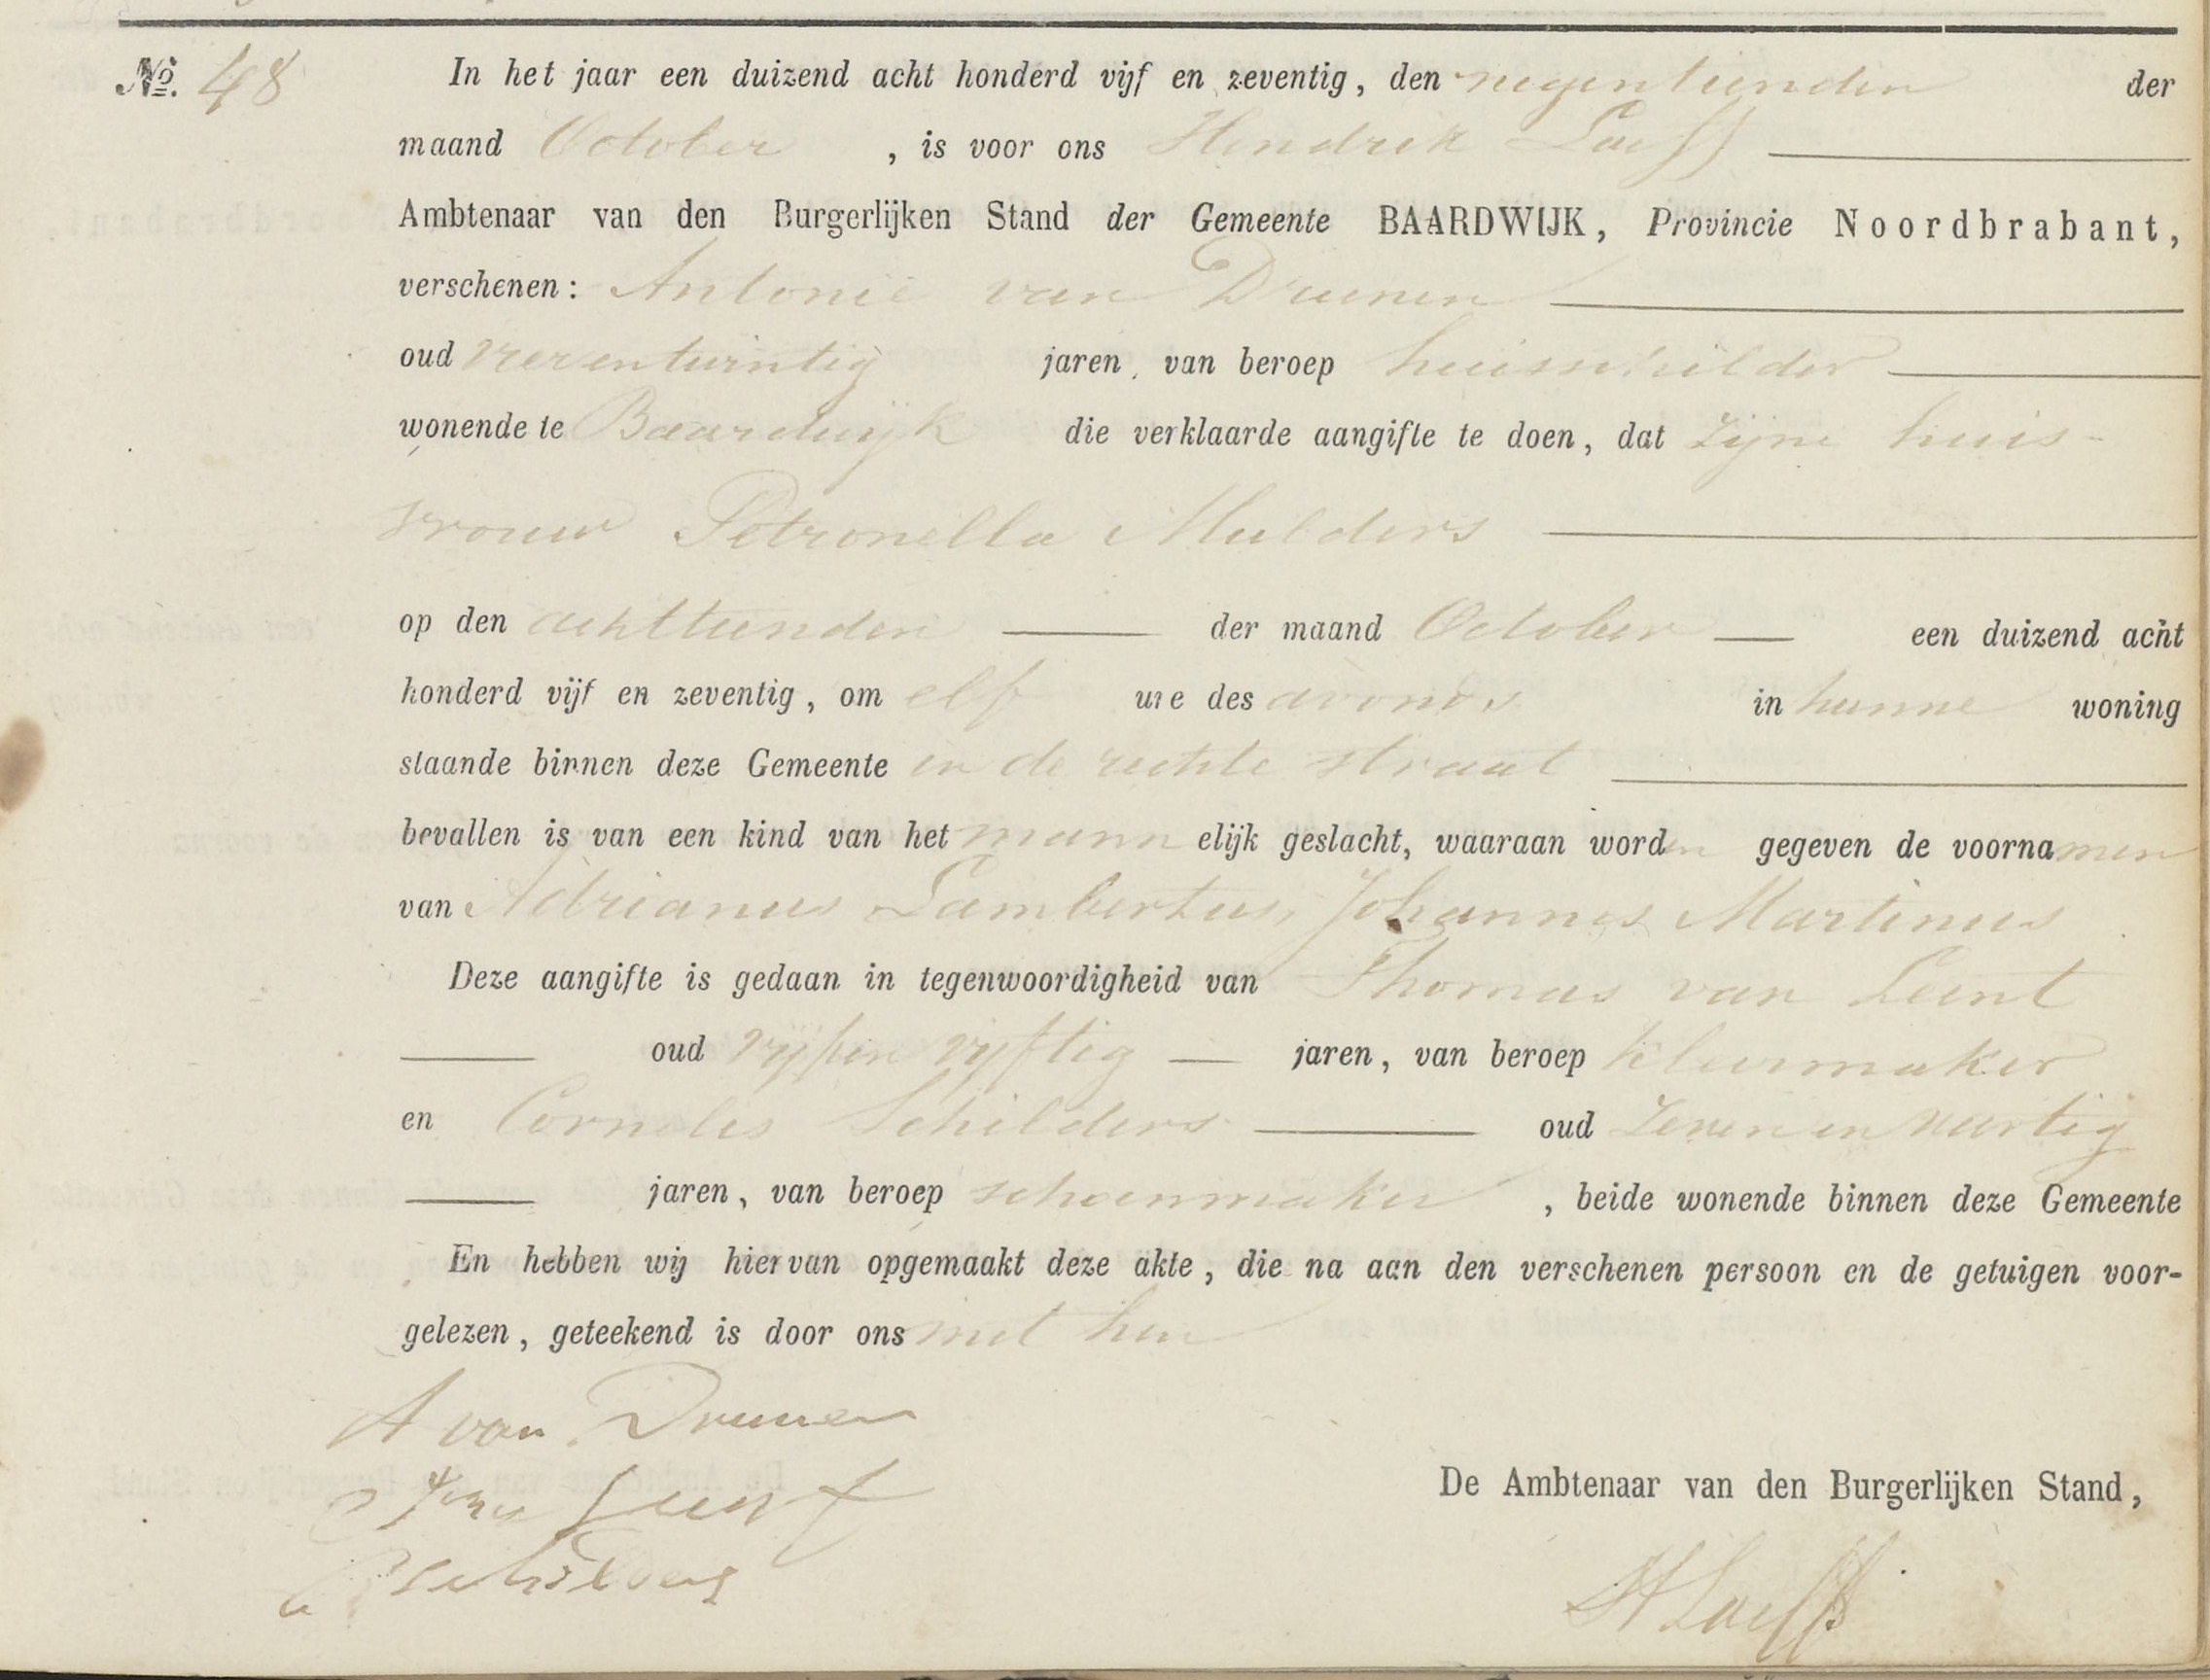 No. 48 In het jaar een duizend acht honderd vijf en zeventig, den negentienden der
maand October, is voor ons Hendrik Loeff
Ambtenaar van den Burgerlijken Stand der Gemeente BAARDWIJK, Provincie Noordbrabant,
verschenen: Antonie van Drunen
oud vierentwintig jaren, van beroep huisschilder
wonende te Baardwijk die verklaarde aangifte te doen, dat zijne huis-
vrouw Petronella Mulders
op den achttienden der maand October een duizend acht
honderd vijf en zeventig, om elf ure des avonds in hunne woning
staande binnen deze Gemeente in de rechte straat
bevallen is van een kind van het mannelijk geslacht, waaraan worden gegeven de voornamen
van Adrianus Lambertus, Johannes Martinus
Deze aangifte is gedaan in tegenwoordigheid van Thomas van Lent
oud vijfen vijftig jaren, van beroep kleermaker
en Cornelis Schilders oud zeven en veertig
jaren, van beroep schoenmaker, beide wonende binnen deze Gemeente
En hebben wij hiervan opgemaakt deze akte, die na aan den verschenen persoon en de getuigen voor-
gelezen, geteekend is door ons met hen
A van Drunen
Lent
C Schilders
De Ambtenaar van den Burgerlijken Stand,
H Loeff